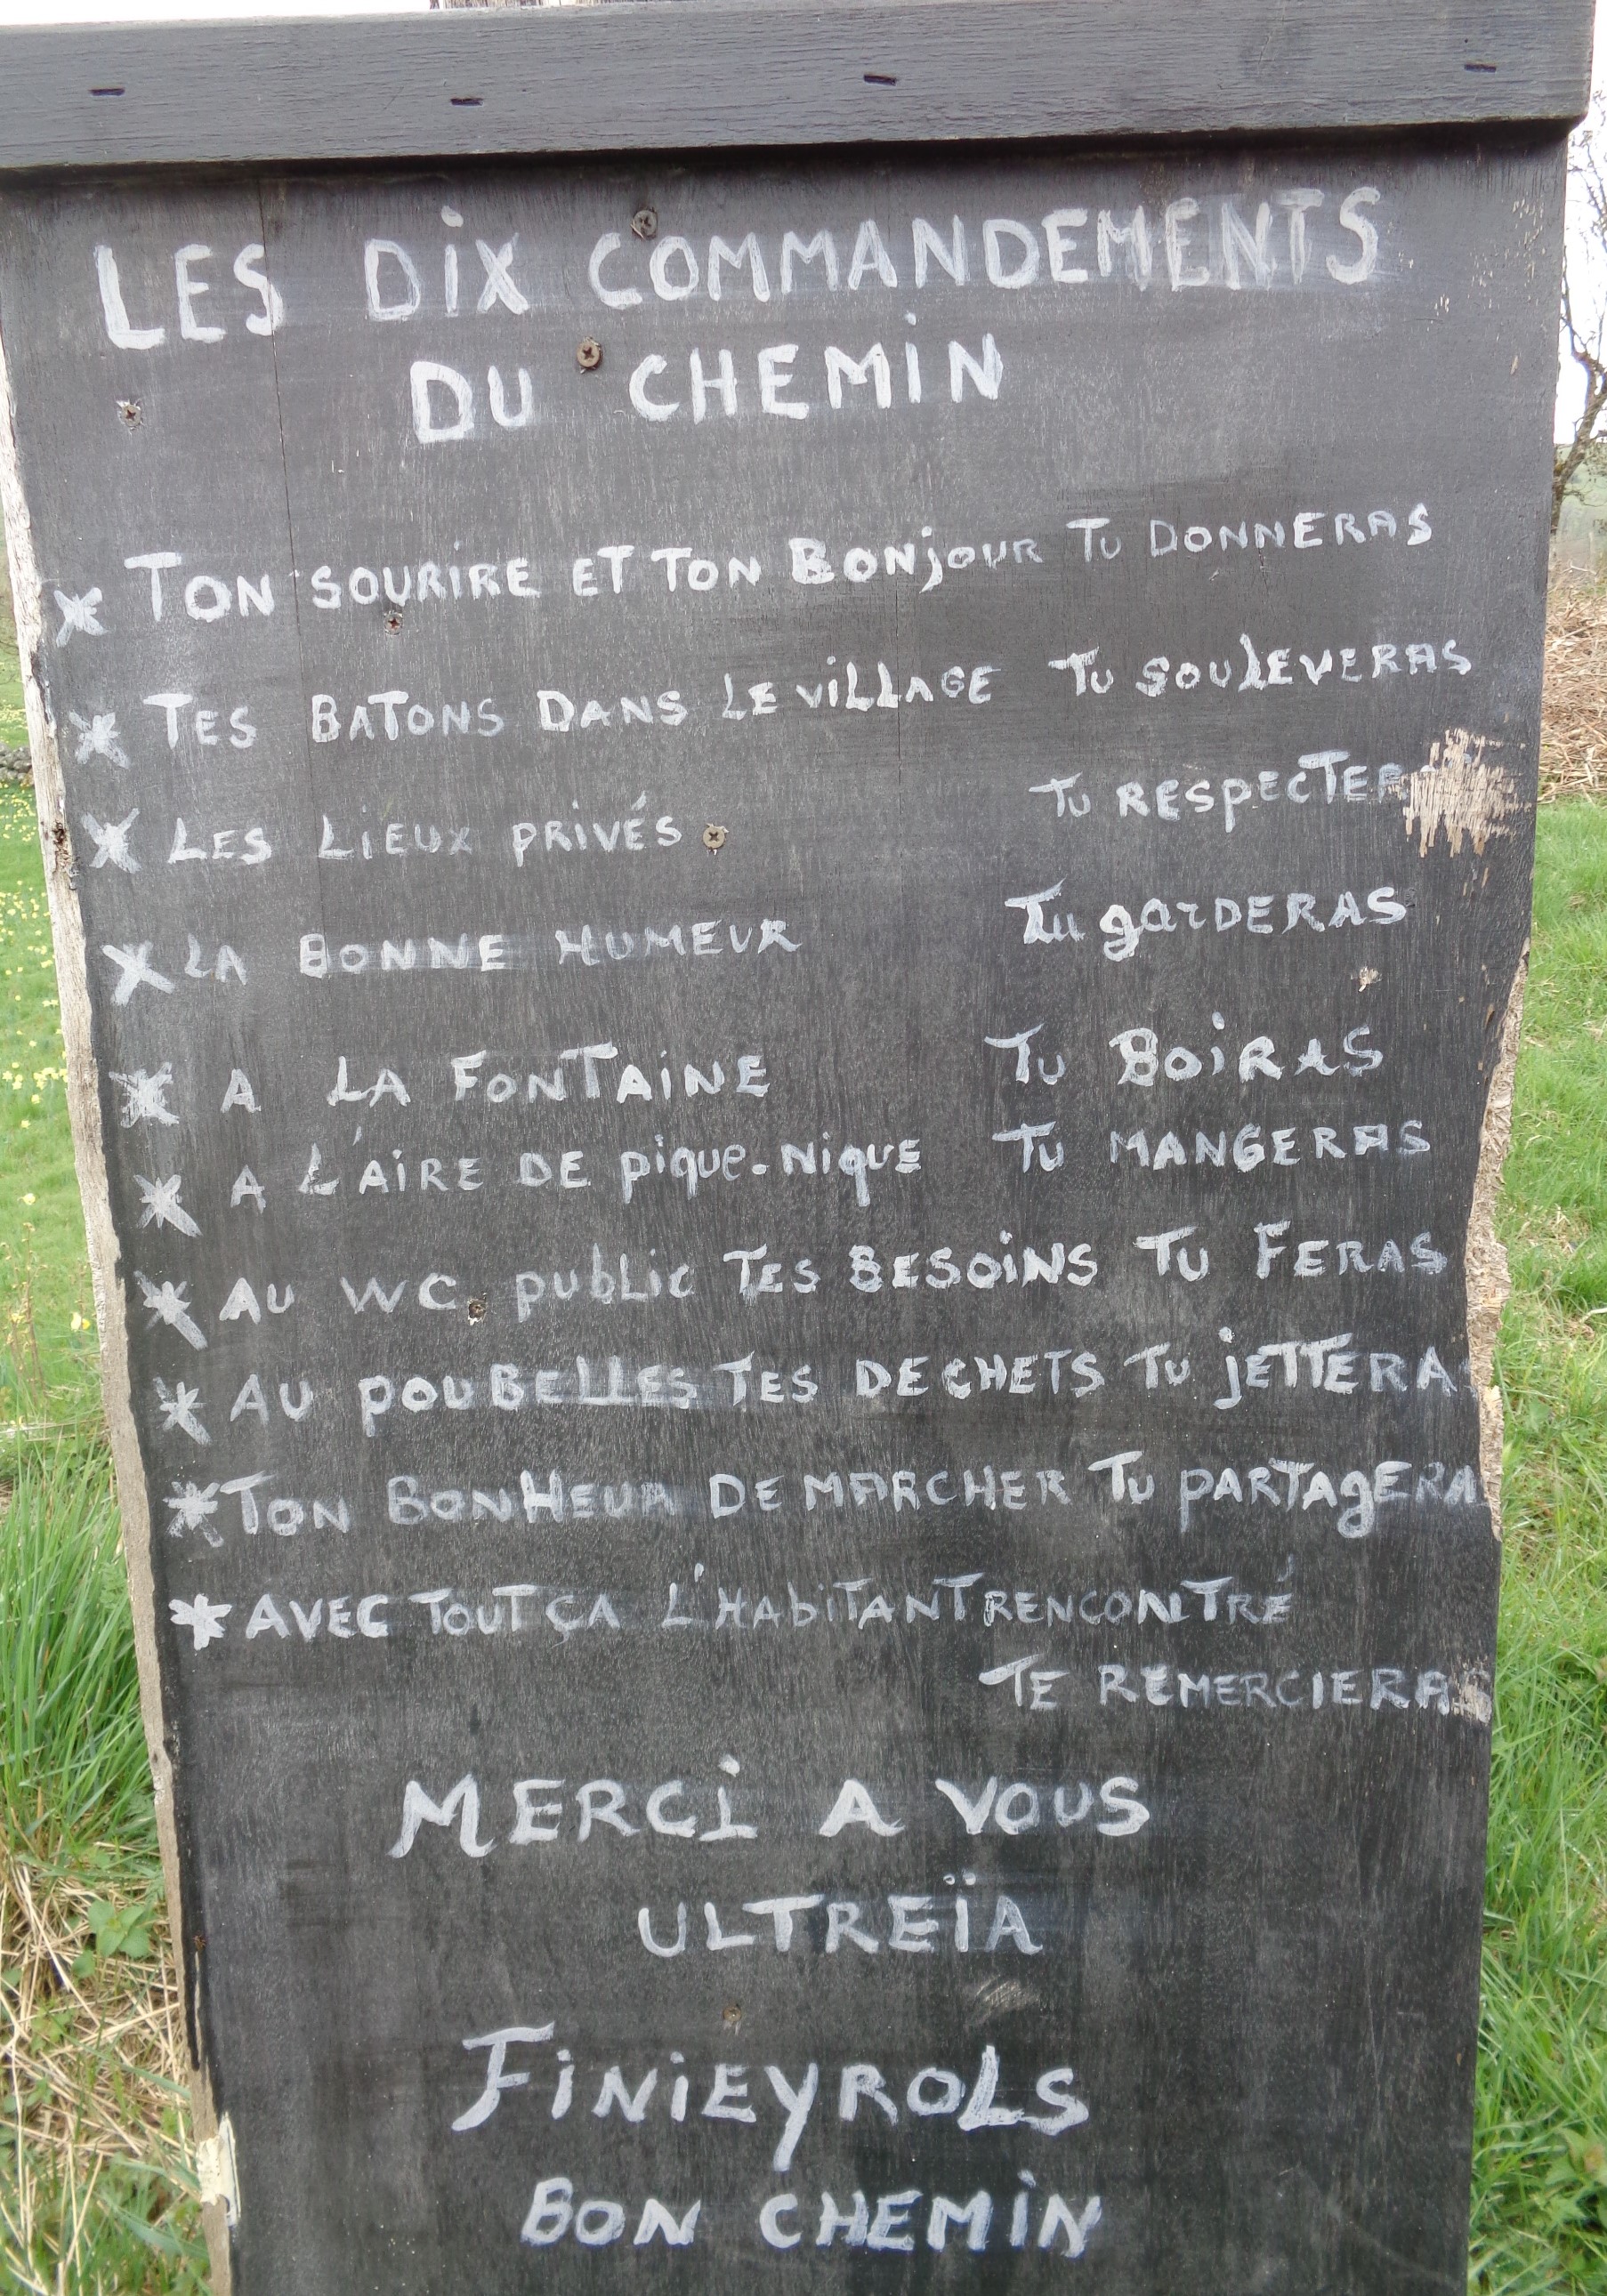 LES DiX COMMANDEMENTS
DU CHEMiN
* TON SOURiRE ET TON BONjOUR TU DONNERAS
* TES BATONS DANS LE ViLLAGE TU SOULEVERAS
* LES LiEUX PRiVÉS TU RESPECTER
* LA BONNE HUMEUR Tu garDERAS
* A LA FONTAiNE TU BOiRAS
* A L'AiRE DE pique-Nique TU MANGERAS
* AU WC public TES BESOiNS TU FERAS
* AU POUBELLES TES DECHETS TU jETTERA
* TON BONHEUR DE MARCHER TU PARTAgERA
* AVEC TOUT ÇA L'HAbiTANT RENCONTRÉ
TE REMERCIERA
MERCi A VOUS
ULTREÏA
FiNiEyROLS
BON CHEMiN